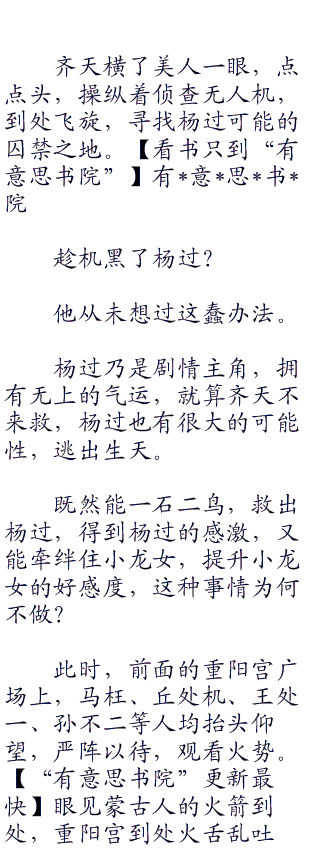 齐天横了美人一眼，点
点头，操纵着侦查无人机，
到处飞旋，寻找杨过可能的
囚禁之地。【看书只到“有
意思书院”】有*意*思*书*
院
趁机黑了杨过？
他从未想过这蠢办法。
杨过乃是剧情主角，拥
有无上的气运，就算齐天不
来救，杨过也有很大的可能
性，逃出生天。
既然能一石二鸟，救出
杨过，得到杨过的感激，又
能牵绊住小龙女，提升小龙
女的好感度，这种事情为何
不做？
此时，前面的重阳宫广
场上，马枉、丘处机、王处
一、孙不二等人均抬头仰
望，严阵以待，观看火势。
【“有意思书院”更新最
快】眼见蒙古人的火箭到
处，重阳宫到处火舌乱吐